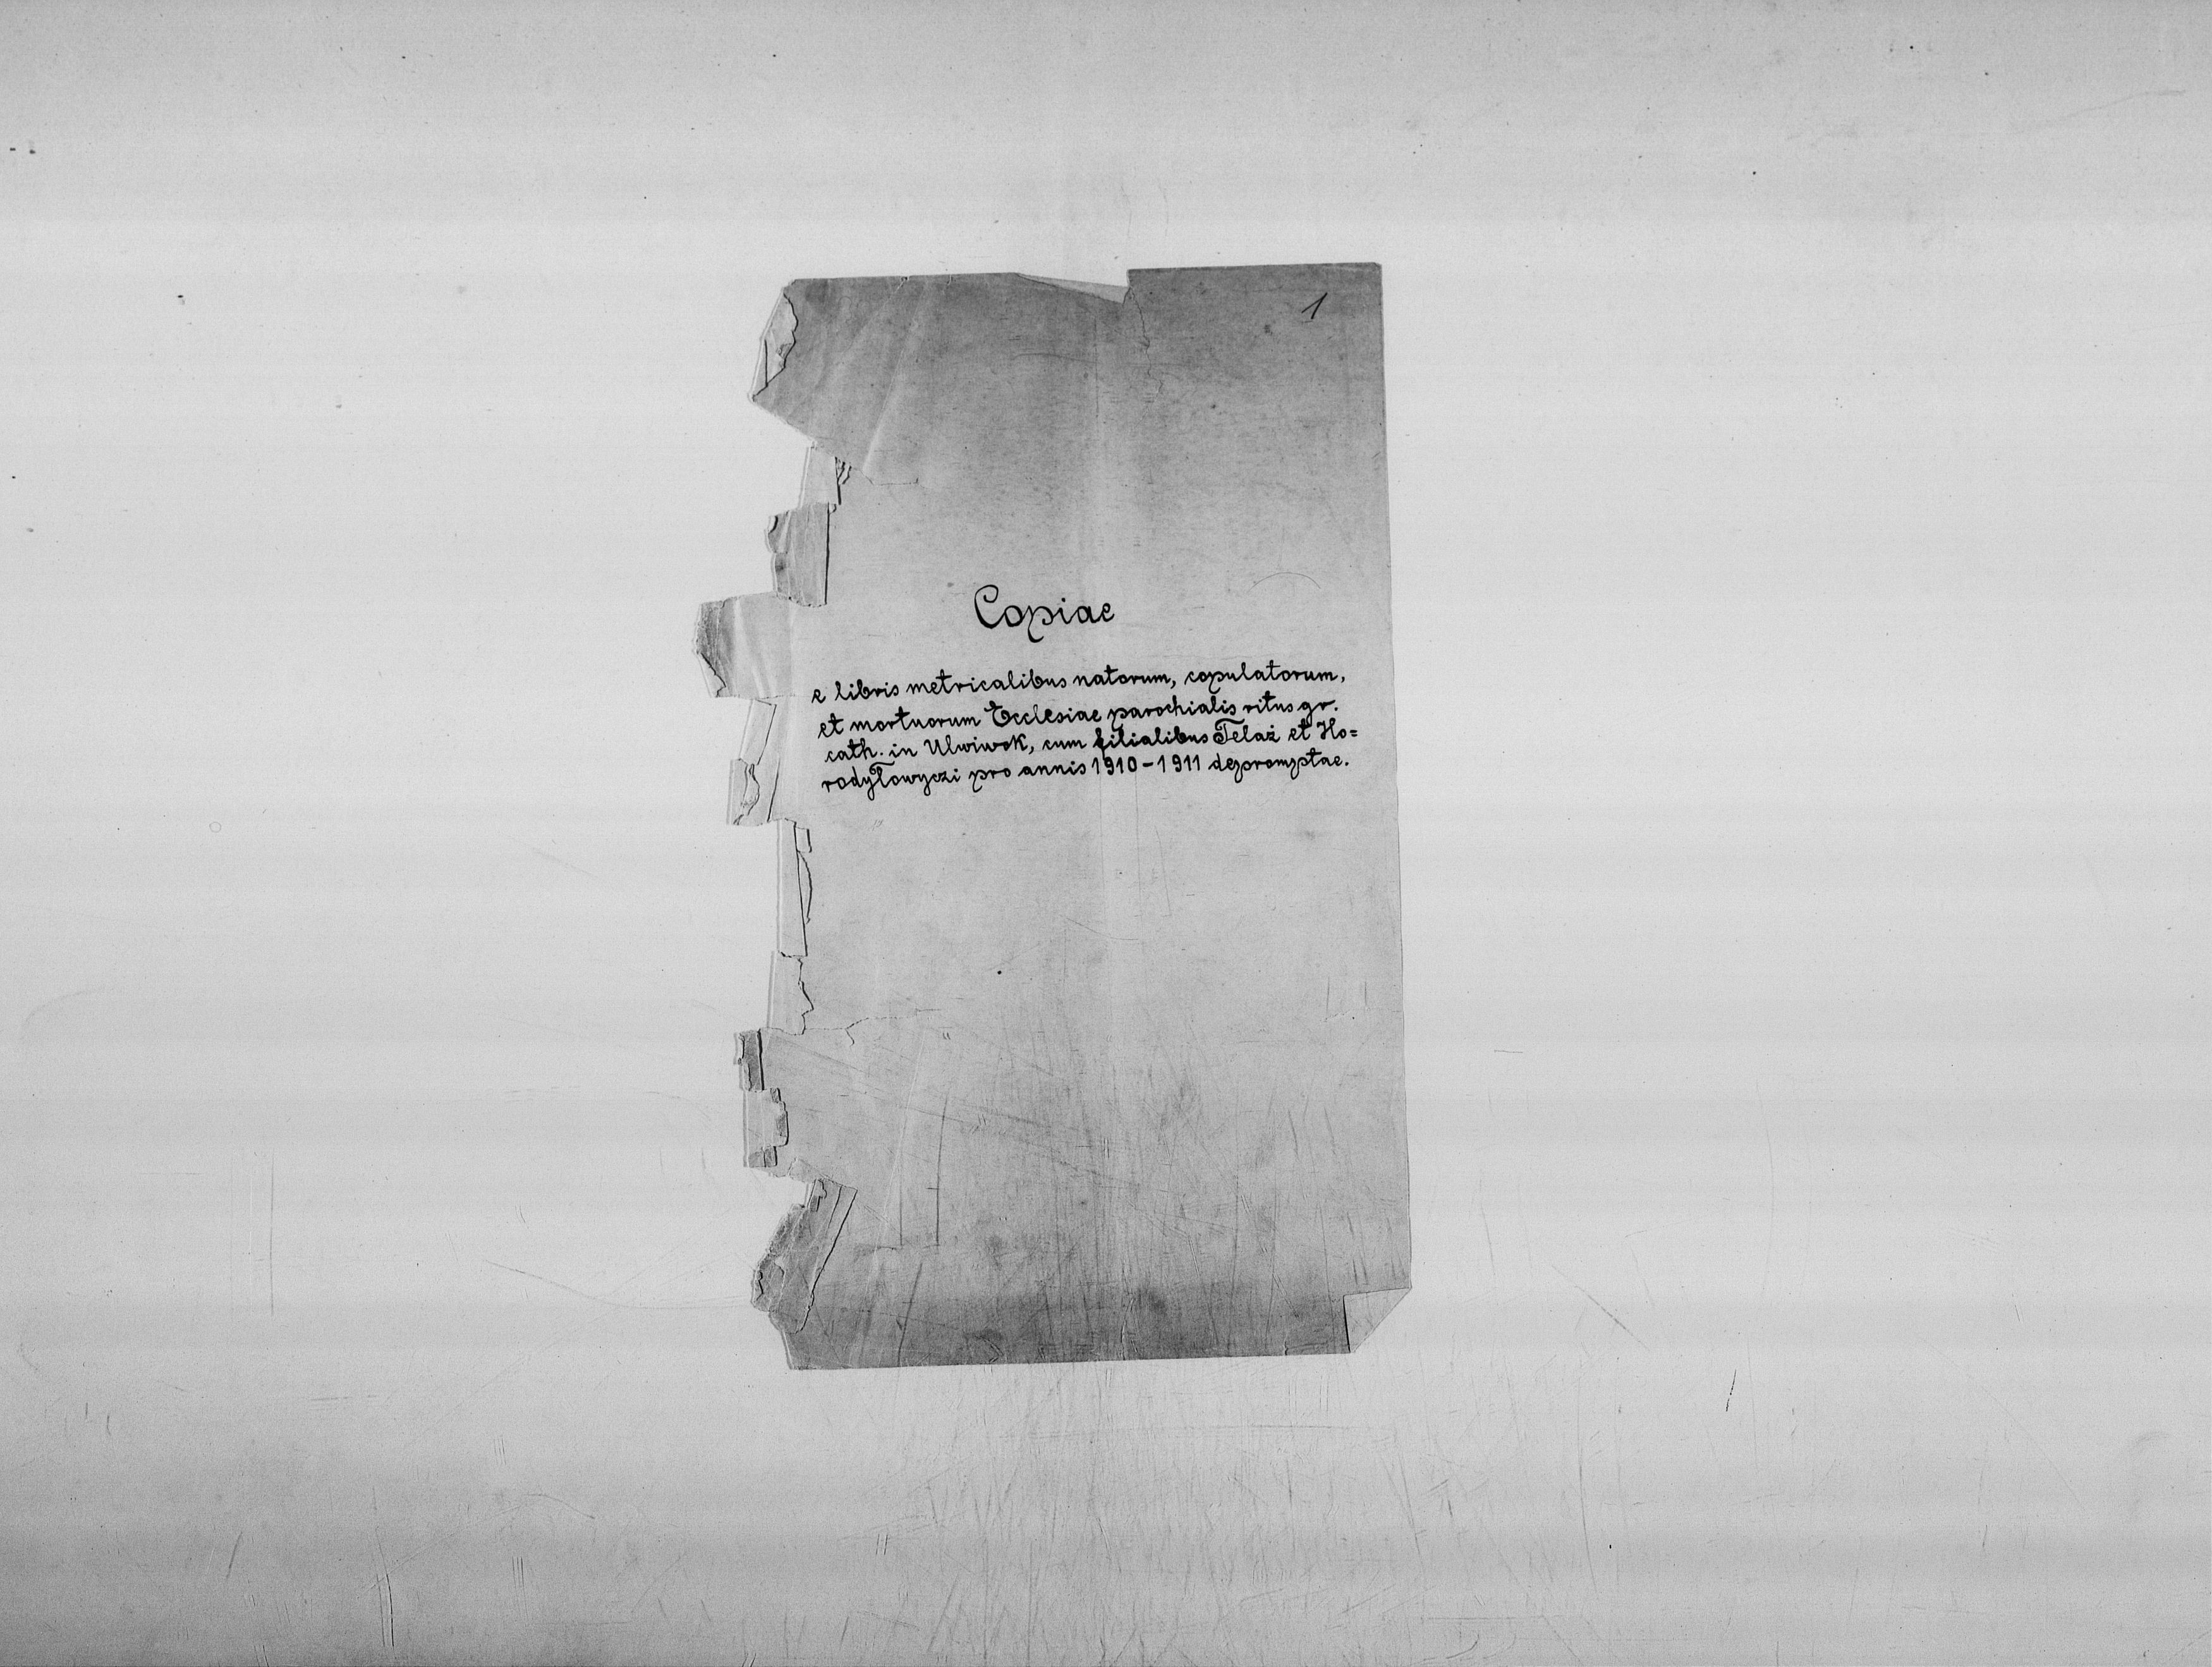 1
Copiae
e libris metricalibus natorum, copulatorum,
et mortuorum Ecclesiae parochialis ritus gr.
cath. in Ulwiwok, cum filialibus Telaż et Ho=
rodyłowyczi pro annis 1910-1911 depromptae.